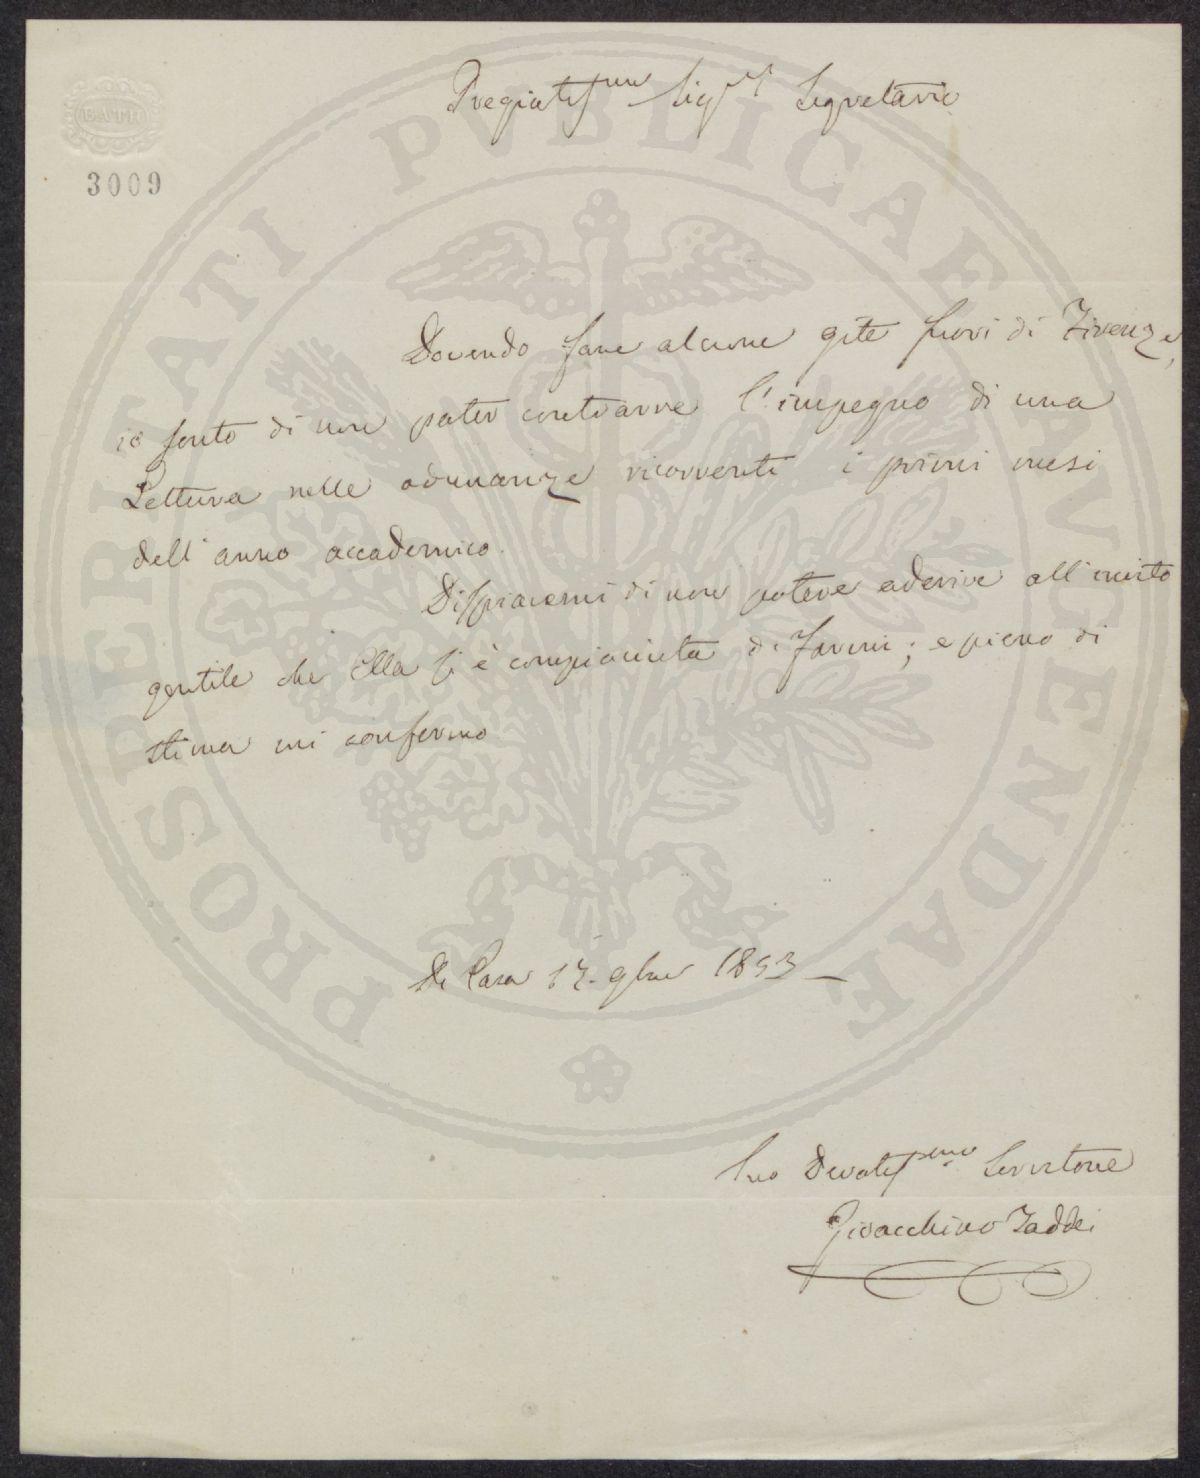 BATH
3009
Pregiatissmo Sigr Segretario
Dovendo fare alcune gite fuori di Firenze,
io sento di non poter contrarre l'impegno di una
Lettura nelle adunanze ricorrenti i primi mesi
dell'anno accademico.
Dispiacemi di non potere aderire all'invito
gentile che Ella si è compiaciuta di farmi; e pieno di
stima mi confermo
Di Casa 9bre 1853
Suo Devotissmo Servitore
Gioacchino Taddei
PROSPERITATI PVBLICAE AVGENDAE